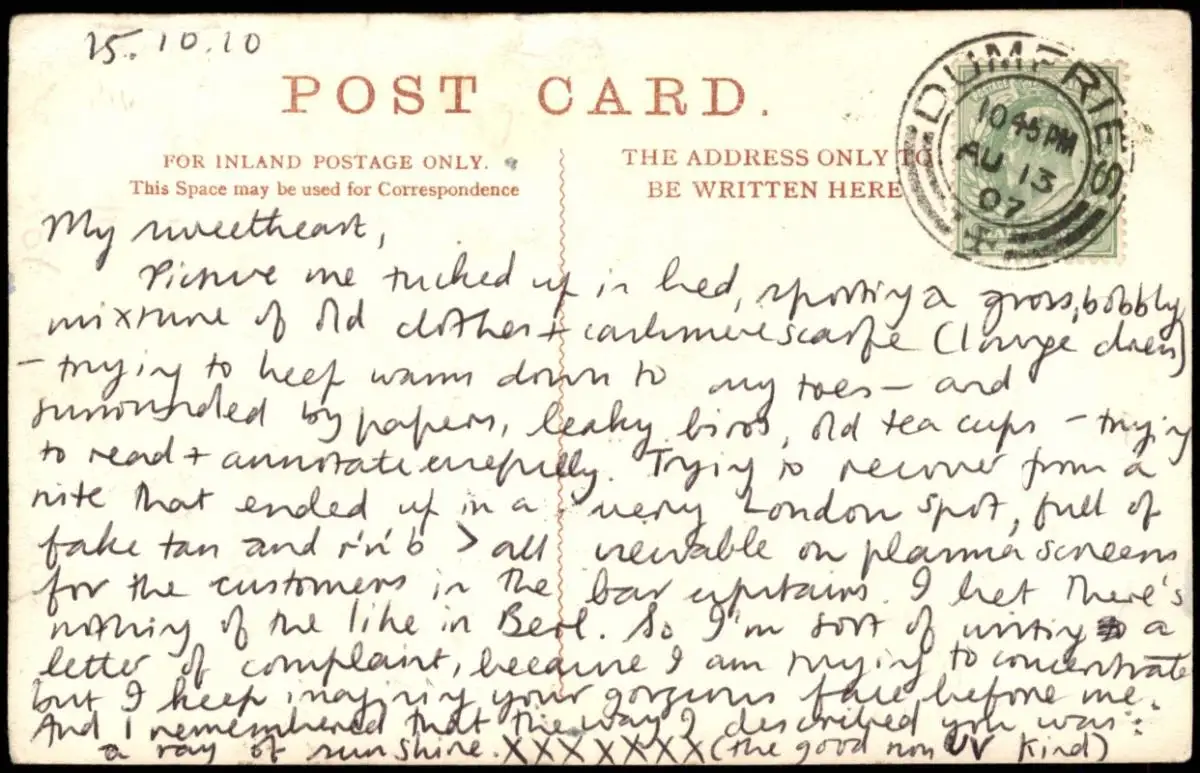 25.10.10
POST CARD.
FOR INLAND POSTAGE ONLY.
This Space may be used for Correspondence
THE ADDRESS ONLY TO
BE WRITTEN HERE
DUMFRIES
10 45 PM
AU 13
07
My sweetheart,
Picture me tucked up in bed, sporting a gross, bobbly
mixture of old clothes + cashmere scarfe (lounge dress)
– trying to keep warm down to my toes – and
surrounded by papers, leaky biros, old tea cups – trying
to read + annotate carefully. Trying to recover from a
nite that ended up in a very London spot, full of
fake tan and r'n'b > all viewable on plasma screens
for the customers in the bar upstairs. I bet there's
nothing of the like in Berl. So I'm sort of writing a
letter of complaint, because I am trying to concentrate
but I keep imagining your gorgeous face before me.
And I remembered that the way I described you was:
a ray of sunshine. XXXXXXX (the good non UV kind)